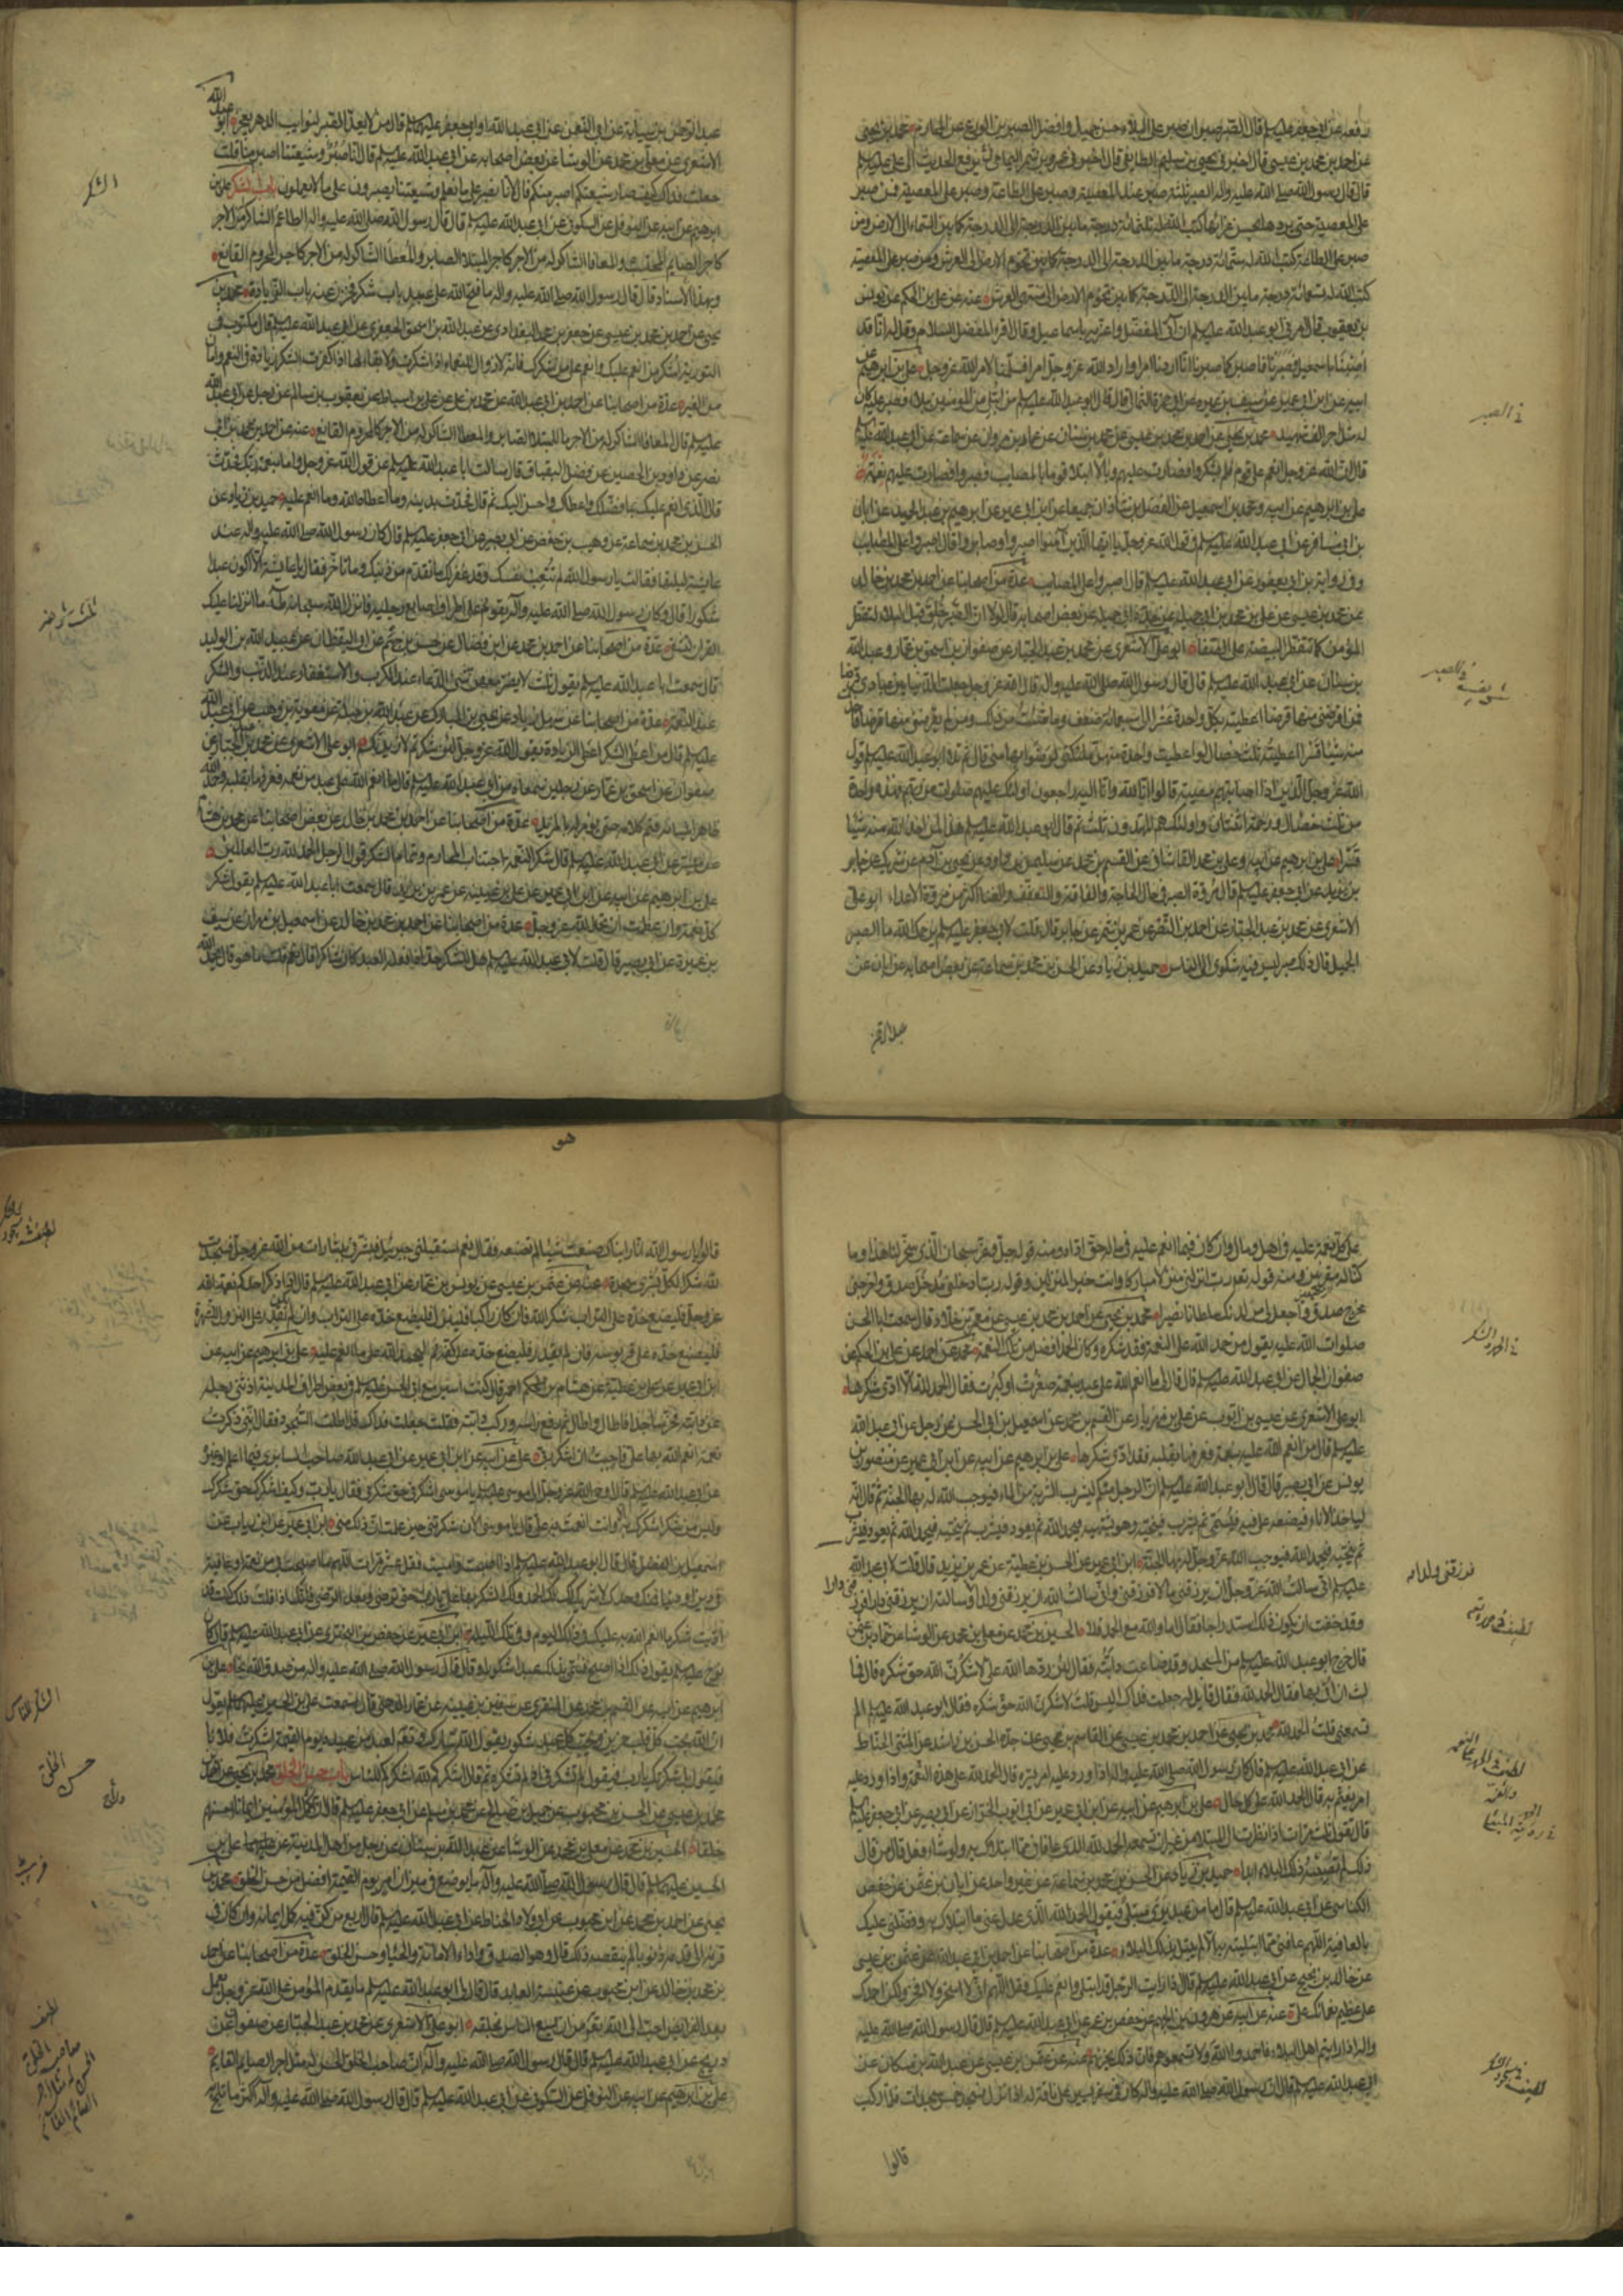 رفعه عن ابي جعفر عليه السلم قال الصبر صبران صبر على البلاء حسن جميل وافضل الصبرين الورع عن المحارم محمد بن يحيى
عن احمد بن محمد بن عيسى قال اخبرني يحيى بن سليم الطايفي قال اخبرني عمرو بن شمر اليماني يرفع الحديث الى علي عليه السلم
قال قال رسول الله صلى الله عليه واله الصبر ثلثة صبر عند المصيبة وصبر على الطاعة وصبر على المعصية فمن صبر
على المصيبة حتى يردها بحسن عزائها كتب الله له ثلثمائة درجة ما بين الدرجة الى الدرجة كما بين السماء الى الارض ومن
صبر على الطاعة كتب الله له ستمائة درجة ما بين الدرجة الى الدرجة كما بين تخوم الارض الى العرش ومن صبر على المعصية
كتب الله له تسعمائة درجة ما بين الدرجة الى الدرجة كما بين تخوم الارض الى منتهى العرش عنه عن علي بن الحكم عن يونس
بن يعقوب قال امرني ابو عبد الله عليه السلم ان آتي المفضل واعزيه باسماعيل وقال اقرء المفضل السلام وقل له انا قد
اصبنا باسمعيل فصبرنا فاصبر كما صبرنا انا اردنا امرا واراد الله عز وجل امرا فسلمنا لامر الله عز وجل علي بن ابرهيم عن
ابيه عن ابن ابي عمير عن سيف بن عميرة عن ابي حمزة الثمالي قال قال ابو عبد الله عليه السلم من ابتلي من المؤمنين ببلاء فصبر عليه كان
له مثل اجر الف شهيد محمد بن يحيى عن احمد بن محمد بن عيسى عن محمد بن سنان عن عمار بن مروان عن سماعة عن ابي عبد الله عليه السلم
قال ان الله عز وجل انعم على قوم فلم يشكروا فصارت عليهم وبالا وابتلا قوما بالمصايب فصبروا فصارت عليهم نعمة
علي بن ابرهيم عن ابيه ومحمد بن اسمعيل عن الفضل بن شاذان جميعا عن ابن ابي عمير عن ابرهيم بن عبد الحميد عن ابان
بن ابي مسافر عن ابي عبد الله عليه السلم في قول الله عز وجل يا ايها الذين آمنوا اصبروا وصابروا قال اصبروا على المصايب
وفي رواية ابن ابي يعفور عن ابي عبد الله عليه السلم قال صابروا على المصايب عدة من اصحابنا عن احمد بن محمد بن خالد
عن محمد بن عيسى عن علي بن محمد بن ابي جميلة عن جده ابي جميلة عن بعض اصحابه قال لولا ان الصبر خلق قبل البلاء لتفطر
المؤمن كما تتفطر البيضة على الصفا ابو علي الاشعري عن محمد بن عبد الجبار عن صفوان بن اسحق بن عمار وعبد الله
بن سنان عن ابي عبد الله عليه السلم قال قال رسول الله صلى الله عليه واله قال الله عز وجل جعلت الدنيا بين عبادي قرضا
فمن اقرضني منها قرضا اعطيته بكل واحدة عشرا الى سبعمائة ضعف وما شئت من ذلك ومن لم يقرضني منها قرضا فاخذت
منه شيئا قسرا اعطيته ثلث خصال لو اعطيت واحدة منهن ملئكتي لرضوا بها مني قال ثم تلا ابو عبد الله عليه السلم قول
الله عز وجل الذين اذا اصابتهم مصيبة قالوا انا لله وانا اليه راجعون اولئك عليهم صلوات من ربهم فهذه واحدة
من ثلث خصال ورحمة اثنتان واولئك هم المهتدون ثلث ثم قال ابو عبد الله عليه السلم هذا لمن اخذ الله منه شيئا
قسرا علي بن ابرهيم عن ابيه وعلي بن محمد القاساني عن القسم بن محمد عن سليمن بن داود عن يحيى بن آدم عن شريك عن جابر
بن يزيد عن ابي جعفر عليه السلم قال مروة الصبر في حال الحاجة والفاقة والتعفف والغنا اكثر من مروة الاعطاء ابو علي
الاشعري عن محمد بن عبد الجبار عن احمد بن النضر عن عمرو بن شمر عن جابر قال قلت لابي جعفر عليه السلم يرحمك الله ما الصبر
الجميل قال ذلك صبر ليس فيه شكوى الى الناس حميد بن زياد عن الحسن بن محمد بن سماعة عن بعض اصحابه عن ابان عن
عبد الرحمن
في الصبر
عبد الرحمن بن سيابة عن ابي النعمن عن ابي عبد الله او ابي جعفر عليهما السلم قال من لا يعد الصبر لنوايب الدهر يعجز ابو عبد الله
الاشعري عن معلى بن محمد عن الوشا عن بعض اصحابه عن ابي عبد الله عليه السلم قال انا صبر وشيعتنا اصبر منا قلت
جعلت فداك كيف صار شيعتكم اصبر منكم قال لانا نصبر على ما نعلم وشيعتنا يصبرون على ما لا يعلمون باب الشكر علي بن
ابرهيم عن ابيه عن النوفلي عن السكوني عن ابي عبد الله عليه السلم قال قال رسول الله صلى الله عليه واله الطاعم الشاكر له من الاجر
كاجر الصايم المحتسب والمعافا الشاكر له من الاجر كاجر المبتلا الصابر والمعطا الشاكر له من الاجر كاجر المحروم القانع
وبهذا الاسناد قال قال رسول الله صلى الله عليه واله ما فتح الله على عبد باب شكر فخزن عنه باب الزيادة محمد بن
يحيى عن احمد بن محمد بن عيسى عن جعفر بن محمد البغدادي عن عبد الله بن اسحق الجعفري عن ابي عبد الله عليه السلم قال مكتوب في
التورية اشكر من انعم عليك وانعم على من شكرك فانه لا زوال للنعماء اذا شكرت ولا بقاء لها اذا كفرت الشكر زيادة في النعم وامان
من الغير عدة من اصحابنا عن احمد بن ابي عبد الله عن محمد بن علي عن علي بن اسباط عن يعقوب بن سالم عن رجل عن ابي عبد الله
عليه السلم قال المعافا الشاكر له من الاجر ما للمبتلا الصابر والمعطا الشاكر له من الاجر كالمحروم القانع عنه عن احمد بن محمد بن ابي
نصر عن داود بن الحصين عن فضل البقباق قال سالت ابا عبد الله عليه السلم عن قول الله عز وجل واما بنعمة ربك فحدث
قال الذي انعم عليك بما فضلك واعطاك واحسن اليك ثم قال فحدث بدينه وما اعطاه الله وما انعم عليه حميد بن زياد عن
الحسن بن محمد بن سماعة عن وهيب بن حفص عن ابي بصير عن ابي جعفر عليه السلم قال كان رسول الله صلى الله عليه واله عند
عايشة ليلتها فقالت يا رسول الله لم تتعب نفسك وقد غفر لك ما تقدم من ذنبك وما تاخر فقال يا عايشة الا اكون عبدا
شكورا قال وكان رسول الله صلى الله عليه وآله يقوم على اطراف اصابع رجليه فانزل الله سبحانه طه ما انزلنا عليك
القران لتشقى عدة من اصحابنا عن احمد بن محمد عن ابن فضال عن حسن بن جهم عن ابو اليقظان عن عبيد الله بن الوليد
قال سمعت ابا عبد الله عليه السلم يقول ثلث لا يضر معهن شيء الدعاء عند الكرب والاستغفار عند الذنب والشكر
عند النعمة عدة من اصحابنا عن سهل بن زياد عن يحيى بن المبارك عن عبد الله بن جبلة عن معوية بن وهب عن ابي عبد الله
عليه السلم قال من اعطي الشكر اعطي الزيادة يقول الله عز وجل لئن شكرتم لازيدنكم ابو علي الاشعري عن محمد بن عبد الجبار عن
صفوان عن اسحق بن عمار عن رجلين سمعاه من ابي عبد الله عليه السلم قال ما انعم الله على عبد من نعمة فعرفها بقلبه وحمد الله
ظاهرا بلسانه فتم كلامه حتى يؤمر له بالمزيد عدة من اصحابنا عن احمد بن محمد بن خالد عن بعض اصحابنا عن محمد بن هشام
عن ميسر عن ابي عبد الله عليه السلم قال شكر النعمة اجتناب المحارم وتمام الشكر قول الرجل الحمد لله رب العالمين
علي بن ابرهيم عن ابيه عن ابن ابي عمير عن علي بن عيينه عن عمر بن يزيد قال سمعت ابا عبد الله عليه السلم يقول شكر
كل نعمة وان عظمت ان تحمد الله عز وجل عدة من اصحابنا عن احمد بن محمد بن خالد عن اسمعيل بن مهران عن سيف
بن عميرة عن ابي بصير قال قلت لابي عبد الله عليه السلم هل للشكر حد اذا فعله العبد كان شاكرا قال نعم قلت ما هو قال يحمد الله
الشكر
على كل نعمة عليه في اهل ومال وان كان فيما انعم عليه في ماله حق اداه ومنه قوله جل وعز سبحان الذي سخر لنا هذا وما
كنا له مقرنين ومنه قوله تعم رب انزلني منزلا مباركا وانت خير المنزلين وقوله رب ادخلني مدخل صدق واخرجني
مخرج صدق واجعل لي من لدنك سلطانا نصيرا محمد بن يحيى عن احمد بن محمد بن عيسى عن معمر بن خلاد قال سمعت ابا الحسن
صلوات الله عليه يقول من حمد الله على النعمة فقد شكره وكان الحمد افضل من تلك النعمة محمد عن احمد عن علي بن الحكم عن
صفوان الجمال عن ابي عبد الله عليه السلم قال قال لي ما انعم الله على عبد بنعمة صغرت او كبرت فقال الحمد لله الا ادى شكرها
ابو علي الاشعري عن عيسى بن ايوب عن علي بن مهزيار عن القسم بن محمد عن اسمعيل بن ابي الحسن عن رجل عن ابي عبد الله
عليه السلم قال من انعم الله عليه بنعمة فعرفها بقلبه فقد ادى شكرها علي بن ابرهيم عن ابيه عن ابن ابي عمير عن منصور بن
يونس عن ابي بصير قال قال ابو عبد الله عليه السلم ان الرجل منكم ليشرب الشربة من الماء فيوجب الله له بها الجنة ثم قال انه
لياخذ الاناء فيضعه على فيه فيسمي ثم يشرب فينحيه وهو يشتهيه فيحمد الله ثم يعود فيشرب ثم ينحيه فيحمد الله ثم يعود فيشرب
ثم ينحيه فيحمد الله فيوجب الله عز وجل له بها الجنة ابن ابي عمير عن الحسن بن عطية عن عمر بن يزيد قال قلت لابي عبد الله
عليه السلم اني سالت الله عز وجل ان يرزقني مالا فرزقني واني سالت الله ان يرزقني ولدا وسالته ان يرزقني دارا فرزقني دارا
وقد خفت ان يكون ذلك استدراجا فقال اما والله مع الحمد فلا الحسين بن محمد عن معلى بن محمد عن الوشا عن حماد بن عثمن
قال خرج ابو عبد الله عليه السلم من المسجد وقد ضاعت دابته فقال لئن ردها الله علي لاشكرن الله حق شكره قال فما
لبث ان اتي بها فقال الحمد لله فقال قايل له جعلت فداك اليس قلت لاشكرن الله حق شكره فقال ابو عبد الله عليه السلم الم
تسمعني قلت الحمد لله محمد بن يحيى عن احمد بن محمد بن عيسى عن القاسم بن يحيى عن جده الحسن بن راشد عن المثنى الحناط
عن ابي عبد الله عليه السلم قال كان رسول الله صلى الله عليه واله اذا ورد عليه امر يسره قال الحمد لله على هذه النعمة واذا ورد عليه
امر يغتم به قال الحمد لله على كل حال علي بن ابرهيم عن ابيه عن ابن ابي عمير عن ابي ايوب الخزاز عن ابي بصير عن ابي جعفر عليه السلم
قال تقول ثلث مرات اذا نظرت الى المبتلا من غير ان تسمعه الحمد لله الذي عافاني مما ابتلاك به ولو شاء فعل قال من قال
ذلك لم تصبه ذلك البلاء ابدا حميد بن زياد عن الحسن بن محمد بن سماعة عن غير واحد عن ابان بن عثمن عن حفص
الكناسي عن ابي عبد الله عليه السلم قال ما من عبد يرى مبتلى فيقول الحمد لله الذي عدل عني ما ابتلاك به وفضلني عليك
بالعافية اللهم عافني مما ابتليته به الا لم يبتل بذلك البلاء عدة من اصحابنا عن احمد بن ابي عبد الله عن عثمن بن عيسى
عن خالد بن نجيح عن ابي عبد الله عليه السلم قال اذا رايت الرجل قد ابتلي وانعم عليك فقل اللهم اني لا اسخر ولا افخر ولكن احمدك
على عظيم نعمائك علي عنه عن ابيه عن هرون بن الجهم عن حفص بن عمر عن ابي عبد الله عليه السلم قال قال رسول الله صلى الله عليه
واله اذا رايتم اهل البلاء فاحمدوا الله ولا تسمعوهم فان ذلك يحزنهم عنه عن عثمن بن عيسى عن عبد الله بن مسكان عن
ابي عبد الله عليه السلم قال ان رسول الله صلى الله عليه واله كان في سفر يسير على ناقة له اذا نزل فسجد خمس سجدات فلما ركب
قالوا
في الحمد والشكر
هو
قالوا يا رسول الله انا رايناك صنعت شيئا لم تصنعه فقال نعم استقبلني جبرئيل فبشرني ببشارات من الله عز وجل فسجدت
لله شكرا لكل بشرى سجدة عنه عن عثمن بن عيسى عن يونس بن عمار عن ابي عبد الله عليه السلم قال اذا ذكر احدكم نعمة الله
عز وجل فليضع خده على التراب شكرا لله فان كان راكبا فلينزل فليضع خده على التراب وان لم يكن يقدر على النزول للشهرة
فليضع خده على قربوسه فان لم يقدر فليضع خده على كفه ثم ليحمد الله على ما انعم عليه علي بن ابرهيم عن ابيه عن
ابن ابي عمير عن علي بن عطية عن هشام بن احمر قال كنت اسير مع ابي الحسن عليه السلم في بعض اطراف المدينة اذ ثنى رجله
عن دابته فخر ساجدا فاطال واطال ثم رفع راسه وركب دابته فقلت جعلت فداك قد اطلت السجود فقال انني ذكرت
نعمة انعم الله بها علي فاحببت ان اشكر ربي علي عن ابيه عن ابن ابي عمير عن ابي عبد الله صاحب السابري فيما اعلم او غيره
عن ابي عبد الله عليه السلم قال اوحى الله عز وجل الى موسى عليه السلم يا موسى اشكرني حق شكري فقال يا رب وكيف اشكرك حق شكرك
وليس من شكر اشكرك به الا وانت انعمت به علي قال يا موسى الان شكرتني حين علمت ان ذلك مني ابن ابي عمير عن ابن رياب عن
اسمعيل بن الفضل قال قال ابو عبد الله عليه السلم اذا اصبحت وامسيت فقل عشر مرات اللهم ما اصبحت بي من نعمة او عافية
في دين او دنيا فمنك وحدك لا شريك لك لك الحمد ولك الشكر بها علي يا رب حتى ترضى وبعد الرضى فانك اذا قلت ذلك كنت قد
اديت شكر ما انعم الله به عليك في ذلك اليوم وفي تلك الليلة ابن ابي عمير عن حفص بن البختري عن ابي عبد الله عليه السلم قال كان
نوح عليه السلم يقول ذلك اذا اصبح فسمي بذلك عبدا شكورا وقال قال رسول الله صلى الله عليه واله من صدق الله نجا علي بن
ابرهيم عن ابيه عن القسم بن محمد عن المنقري عن سفين بن عيينه عن عمار الدهني قال سمعت علي بن الحسين عليهما السلم يقول
ان الله يحب كل قلب حزين ويحب كل عبد شكور يقول الله تبارك وتعم لعبد من عبيده يوم القيمة اشكرت فلانا
فيقول بل شكرتك يا رب فيقول لم تشكرني اذ لم تشكره ثم قال اشكركم لله اشكركم للناس باب حسن الخلق محمد بن يحيى عن احمد بن
محمد بن عيسى عن الحسن بن محبوب عن جميل بن صالح عن محمد بن مسلم عن ابي جعفر عليه السلم قال ان اكمل المؤمنين ايمانا احسنهم
خلقا الحسين بن محمد عن معلى بن محمد عن الوشا عن عبد الله بن سنان عن رجل من اهل المدينة عن علي بن
الحسين عليه السلم قال قال رسول الله صلى الله عليه وآله ما يوضع في ميزان امرء يوم القيمة افضل من حسن الخلق محمد بن
يحيى عن احمد بن محمد عن ابن محبوب عن ابي ولاد الحناط عن ابي عبد الله عليه السلم قال اربع من كن فيه كمل ايمانه وان كان من
قرنه الى قدمه ذنوبا لم ينقصه ذلك قال وهو الصدق واداء الامانة والحياء وحسن الخلق عدة من اصحابنا عن احمد
بن محمد بن خالد عن ابن محبوب عن عنبسة العابد قال قال لي ابو عبد الله عليه السلم ما يقدم المؤمن على الله عز وجل بعمل
بعد الفرايض احب الى الله تعم من ان يسع الناس بخلقه ابو علي الاشعري عن محمد بن عبد الجبار عن صفوان عن
ذريح عن ابي عبد الله عليه السلم قال قال رسول الله صلى الله عليه وآله ان صاحب الخلق الحسن له مثل اجر الصايم القايم
علي بن ابرهيم عن ابيه عن النوفلي عن السكوني عن ابي عبد الله عليه السلم قال قال رسول الله صلى الله عليه وآله اكثر ما تلج به
الشكر للناس
حسن الخلق